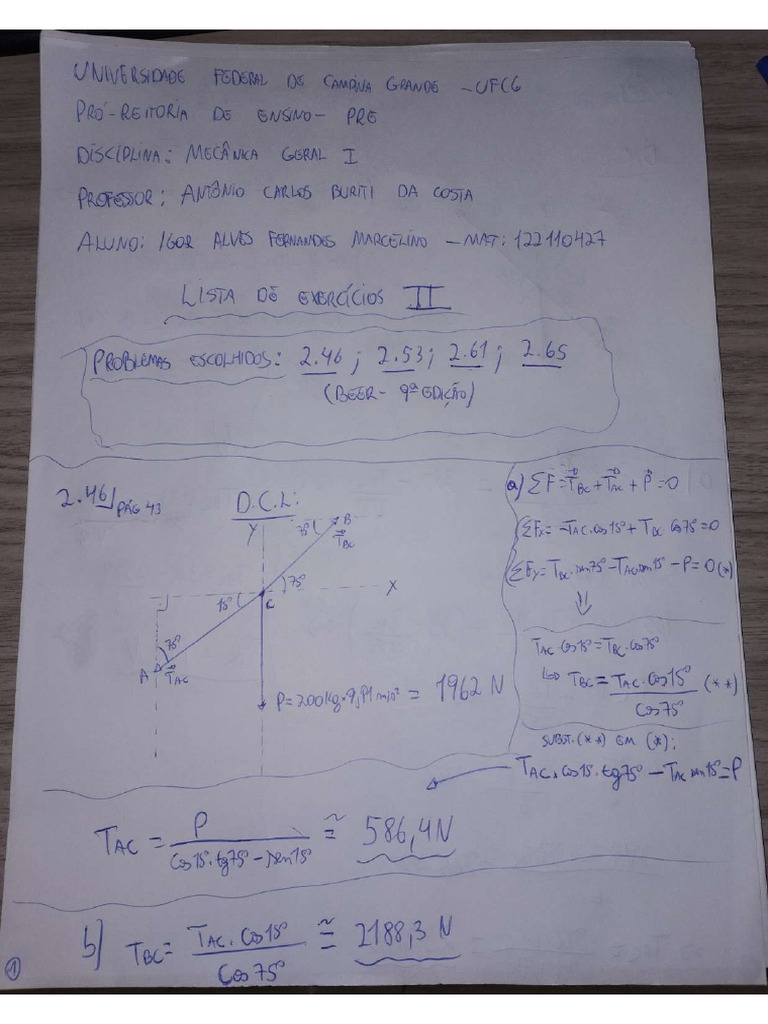 UNIVERSIDADE FEDERAL DE CAMPINA GRANDE - UFCG
PRÓ-REITORIA DE ENSINO - PRE
DISCIPLINA: MECÂNICA GERAL I
PROFESSOR: ANTÔNIO CARLOS BURITI DA COSTA
ALUNO: IGOR ALVES FERNANDES MARCELINO - MAT: 122110427
LISTA DE EXERCÍCIOS II
PROBLEMAS ESCOLHIDOS: 2.46 ; 2.53 ; 2.61 ; 2.65
(BEER - 9ª EDIÇÃO)
2.46 PÁG 43
D.C.L:
Y
75° B
T⃗BC
75°
X
15° C
75°
A T⃗AC
P = 200Kg · 9,81 m/s² = 1962 N
a) ΣF = T⃗BC + T⃗AC + P⃗ = 0
ΣFx = -TAC · cos 15° + TBC cos 75° = 0
ΣFy = TBC · sen 75° - TAC sen 15° - P = 0 (*)
⇓
TAC · cos 15° = TBC · cos 75°
LOGO TBC = TAC · cos 15° / cos 75° (**)
SUBST. (**) EM (*):
TAC · cos 15° · tg 75° - TAC sen 15° = P
TAC = P / (cos 15° · tg 75° - sen 15°) ≅ 586,4 N
b) TBC = TAC · cos 15° / cos 75° ≅ 2188,3 N
1